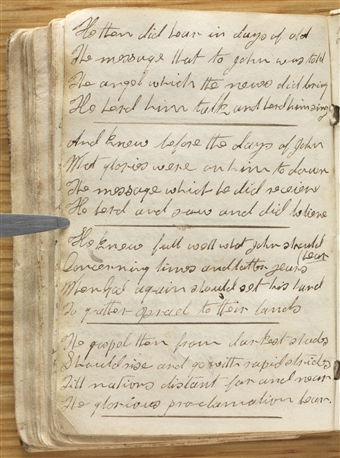 He then did bear in days of old
The message that to John was told
The angel which the news did bring
He herd him talk and herd him sing
And knew before the days of John
What glories were on him to dawn
The message which he did receive
He herd and saw and did believe
He knew full well what John should
(bear
Concerning times and latter years
When God again should set his hand
To gather spread to their lands
The gospel then from darkest shades
Should rise and go with rapid strides
Till nations distant far and near
The glorious proclamation bear.